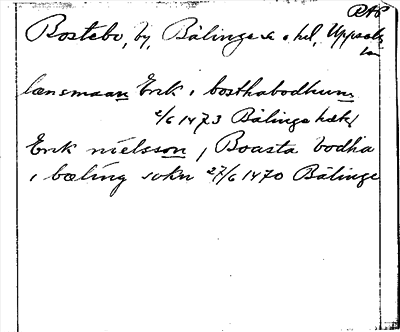 RAP
Bostebo, by, Bälinge s. o hd, Uppsala
län
lænsmaan Erik i bosthabodhum
2/6 1473 Bälinge hæk
Erik nielsson i Boasta bodha
i bæling sokn 27/6 1470 Bälinge